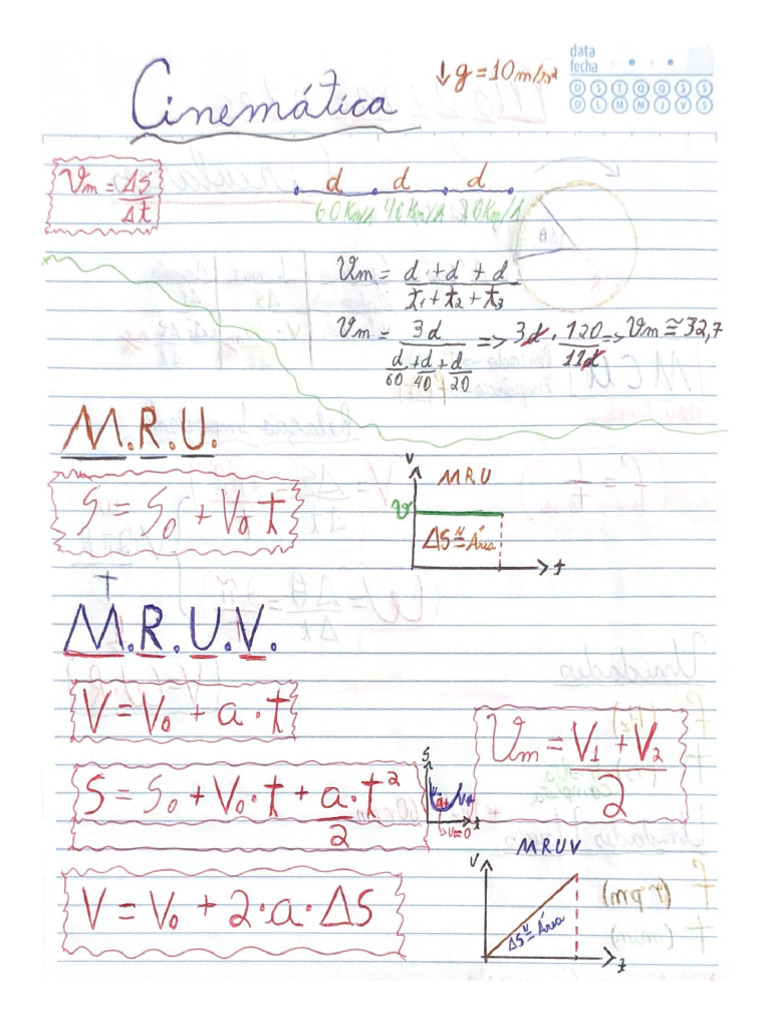 Cinemática
↓g = 10 m/s²
data
fecha
D S T Q Q S S
D L M M J V S
Vm = ΔS/Δt
d d d
60 Km/h 40 Km/h 20 Km/h
Vm = d + d + d / t₁ + t₂ + t₃
Vm = 3d / (d/60 + d/40 + d/20) => 3d · 120/11d => Vm ≅ 32,7
M.R.U.
S = S₀ + V₀ t
V
MRU
V
ΔS ᴺ= Área
t
M.R.U.V.
V = V₀ + a · t
Vm = V₁ + V₂ / 2
S = S₀ + V₀ · t + a · t² / 2
S
V=0
t
MRUV
V = V₀ + 2 · a · ΔS
V
ΔS ᴺ= Área
t